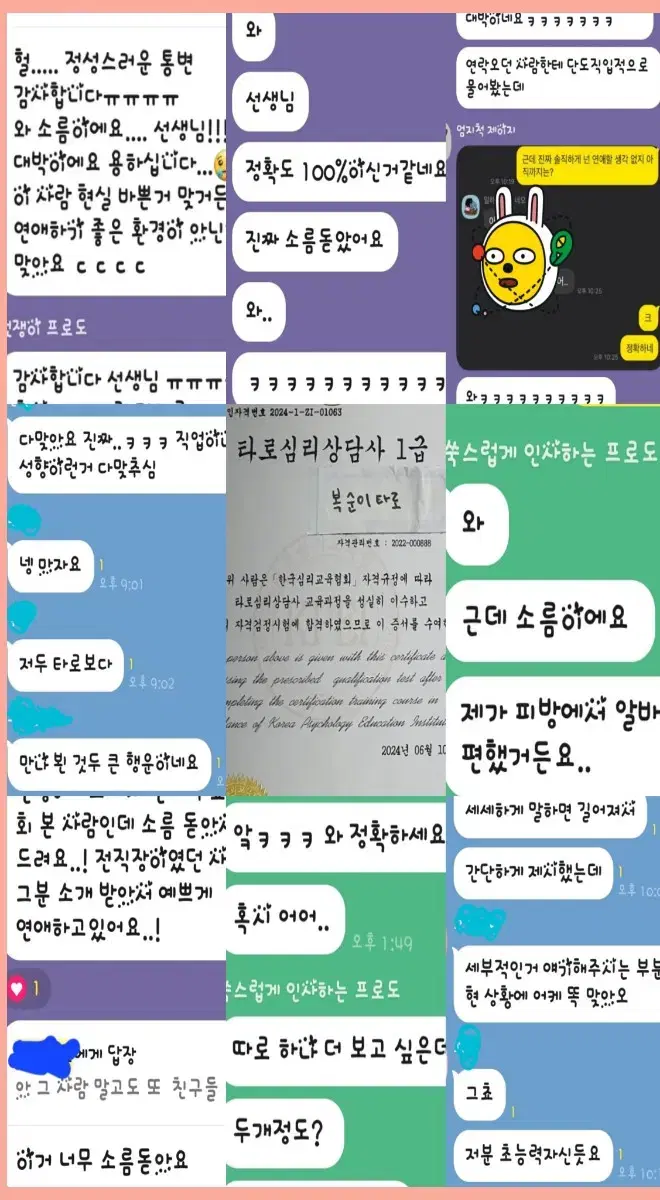 헐..... 정성스러운 통변
감사합니다ㅠㅠㅠㅠ
와 소름이에요.... 선생님!!!
대박이에요 용하십니다...
이 사람 현실 바쁜거 맞거든
연애하기 좋은 환경이 아닌
맞아요 ㄷㄷㄷㄷ
프로도
감사합니다 선생님 ㅠㅠㅠ
와
선생님
정확도 100%이신거같네요
진짜 소름돋았어요
와..
ㅋㅋㅋㅋㅋㅋㅋㅋㅋㅋㅋ
대박이네요 ㅋㅋㅋㅋㅋㅋㅋ
연락오던 사람한테 단도직입적으로
물어봤는데
엄지척 제이지
근데 진짜 솔직하게 넌 연애할 생각 없지 아
직까지는?
오후 10:19
오후 10:25
크
정확하네
오후 10:25
와ㅋㅋㅋㅋㅋㅋㅋㅋㅋㅋㅋ
다맞아요 진짜..ㅋㅋㅋ 직업이나
성향이런거 다맞추심
넹 맞자요
1
오후 9:01
저두 타로보다
1
오후 9:02
만나 뵌 것두 큰 행운이네요
1
자격번호 2024-1-ZI-01063
타로심리상담사 1급
복순이 타로
자격관리번호 : 2022-000888
위 사람은 「한국심리교육협회」 자격규정에 따라
타로심리상담사 교육과정을 성실히 이수하고
자격검정시험에 합격하였으므로 이 증서를 수여
person above is given with this certificate
the prescribed qualification test after
the certification training course in
of Korea Psychology Education
2024년 06월
쑥스럽게 인사하는 프로도
와
근데 소름이에요
제가 피방에서 알바
편했거든요..
회 본 사람인데 소름 돋아서
드려요..! 전직장이였던
그분 소개 받아서 예쁘게
연애하고있어요..!
1
에게 답장
아 그 사람 말고도 또 친구들
이거 너무 소름돋아요
앜ㅋㅋㅋ 와 정확하세요
혹시 어어..
오후 1:49
스럽게 인사하는 프로도
따로 하나 더 보고 싶은데
두개정도?
세세하게 말하면 길어져서
1
간단하게 제시했는데
1
세부적인거 얘기해주시는 부분
현 상황에 어케 똑 맞아오
그쵸
1
저분 초능력자신듯요
1